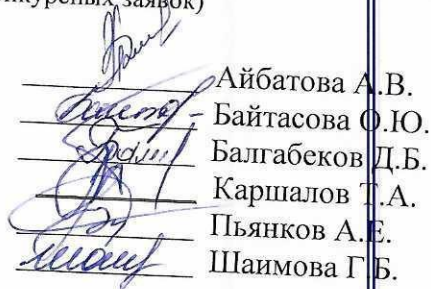 заявок)
Айбатова А.В.
Байтасова О.Ю.
Балгабеков Д.Б.
Каршалов Т.А.
Пьянков А.Е.
Шаимова Г.Б.